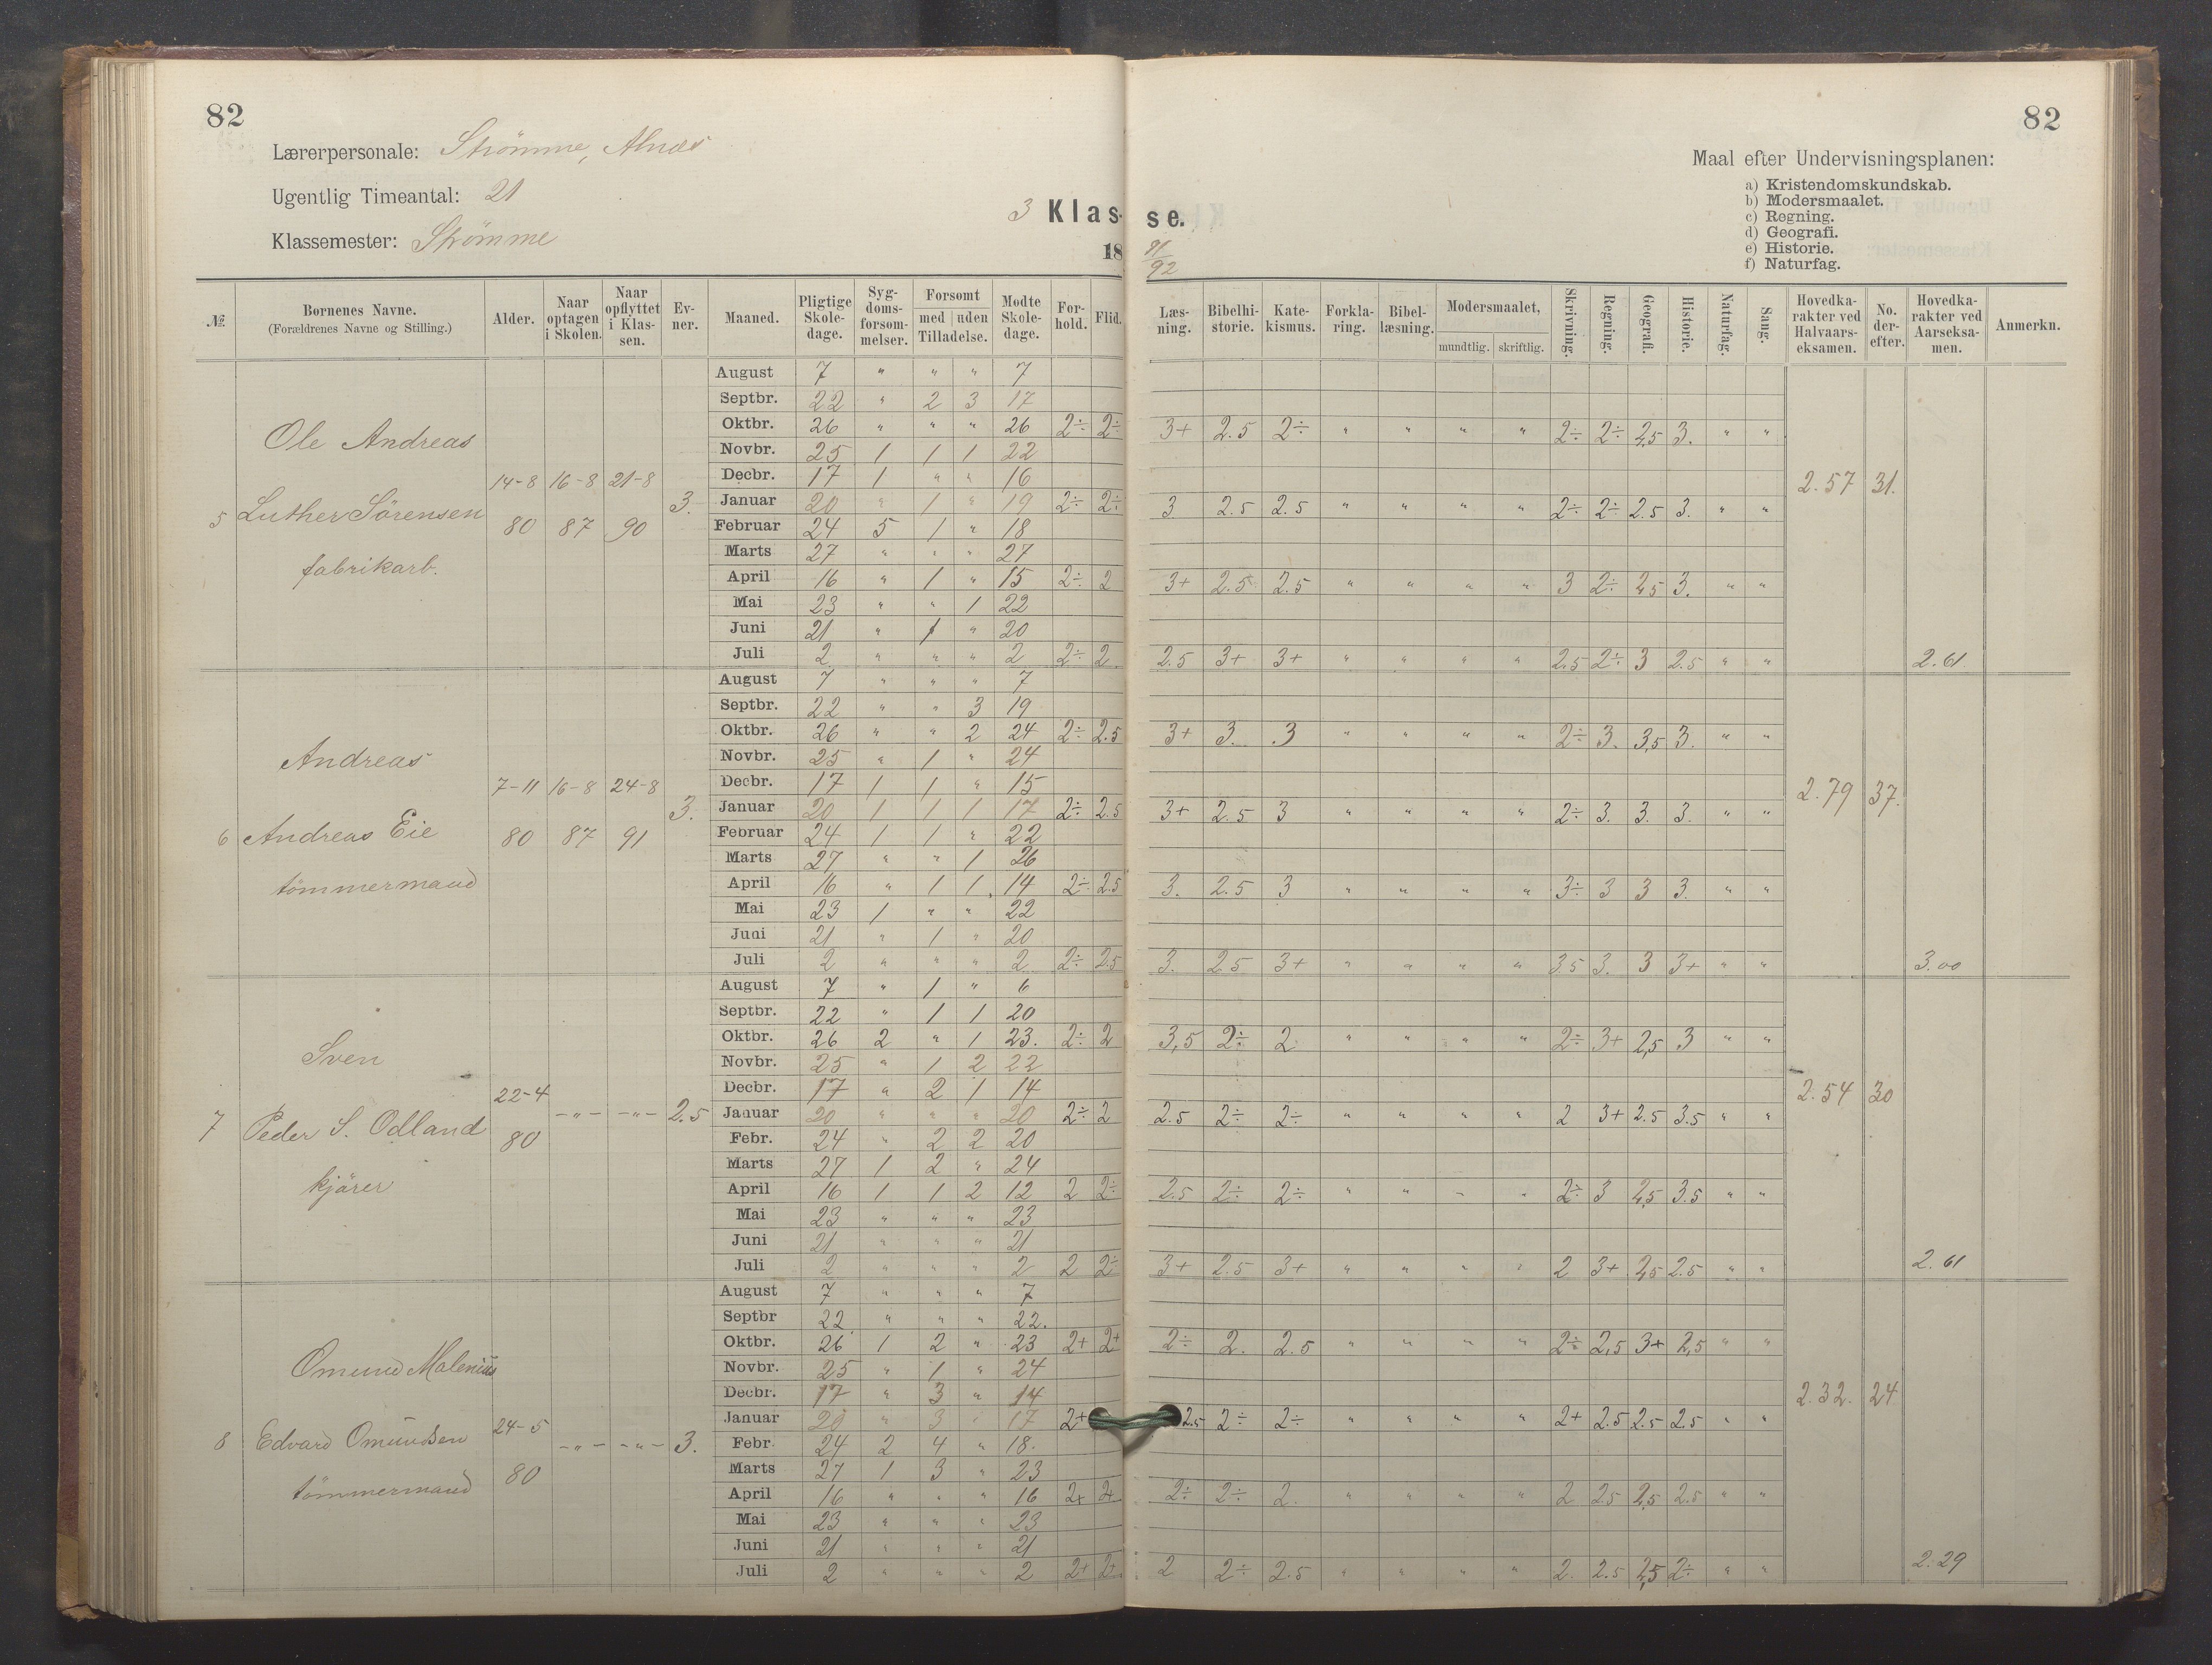 82
82
Lærerpersonale: Strömme, Alnæs
Ugentlig Timeantal: 21
Klassemester: Strömme
3 Klasse.
18 91/92
Maal efter Undervisningsplanen:
a) Kristendomskundskab.
b) Modersmaalet.
c) Regning.
d) Geografi.
e) Historie.
f) Naturfag.
№ Børnenes Navne. (Forældrenes Navne og Stilling.) Alder. Naar optagen i Skolen. Naar opflyttet i Klassen. Evner. Maaned. Pligtige Skoledage. Sygdomsforsommelser. Forsømt med uden Tilladelse. Mødte Skoledage. Forhold. Flid. Læsning. Bibelhistorie. Katekismus. Forklaring. Bibellæsning. Modersmaalet, mundtlig. skriftlig. Skrivning. Regning. Geografi. Historie. Naturfag. Sang. Hovedkarakter ved Halvaarseksamen. No. derefter. Hovedkarakter ved Aarseksamen. Anmerkn.
5 Ole Andreas
Luther Sörensen
fabrikarb.
14-8 80 16-8 87 21-8 90 3.
August 7 " " " 7
Septbr. 22 " 2 3 17
Oktbr. 26 " " " 26 2÷ 2÷ 3+ 2.5 2÷ " " " " 2÷ 2÷ 2,5 3. " "
Novbr. 25 1 1 1 22
Decbr. 17 1 " " 16 2.57 31.
Januar 20 " 1 " 19 2÷ 2÷ 3 2.5 2.5 " " " " 2÷ 2÷ 2.5 3. " "
Februar 24 5 1 " 18
Marts 27 " " " 27
April 16 " 1 " 15 2÷ 2 3+ 2.5 2.5 " " " " 3 2÷ 2,5 3. " "
Mai 23 " " 1 22
Juni 21 " 1 " 20
Juli 2 " " " 2 2÷ 2 2.5 3+ 3+ " " " " 2.5 2÷ 3 2.5 " " 2.61
6 Andreas
Andreas Eie
tömmermand
7-11 80 16-8 87 24-8 91 3.
August 7 " " " 7
Septbr. 22 " " 3 19
Oktbr. 26 " " 2 24 2÷ 2.5 3+ 3. 3 " " " " 2÷ 3. 3,5 3. " "
Novbr. 25 " 1 " 24
Decbr. 17 1 1 " 15 2.79 37.
Januar 20 1 1 1 17 2÷ 2.5 3+ 2.5 3 " " " " 2÷ 3. 3. 3. " "
Februar 24 1 1 " 22
Marts 27 " " 1 26
April 16 " 1 1 14 2÷ 2.5 3. 2.5 3 " " " " 3÷ 3 3 3. " "
Mai 23 1 " " 22
Juni 21 " 1 " 20
Juli 2 " " " 2 2÷ 2.5 3. 2.5 3+ " " " " 3.5 3. 3 3+ " " 3.00
7 Sven
Peder S. Odland
kjörer
22-4 80 -"- -"- 2.5
August 7 " 1 " 6
Septbr. 22 " 1 1 20
Oktbr. 26 2 " 1 23. 2÷ 2 3,5 2÷ 2 " " " " 2÷ 3+ 2,5 3 " "
Novbr. 25 " 1 2 22
Decbr. 17 " 2 1 14 2.54 30
Januar 20 " " " 20 2÷ 2 2.5 2÷ 2÷ " " " " 2 3+ 2.5 3.5 " "
Febr. 24 " 2 2 20
Marts 27 1 2 " 24
April 16 1 1 2 12 2 2÷ 2.5 2÷ 2÷ " " " " 2÷ 3 2,5 3.5 " "
Mai 23 " " " 23
Juni 21 " " " 21
Juli 2 " " " 2 2 2÷ 3+ 2.5 3+ " " " " 2 3+ 2,5 2.5 " " 2.61
8 Omund Malenius
Edvard Omundsen
tömmermand
24-5 80 -"- -"- 3.
August 7 " " " 7
Septbr 22 " " " 22.
Oktbr. 26 1 2 " 23 2+ 2+ 2÷ 2. 2.5 " " " " 2÷ 2,5 3+ 2,5 " "
Novbr. 25 " 1 " 24
Decbr. 17 " 3 " 14 2.32. 24
Januar 20 " 3 " 17 2+ 2.5 2÷ 2÷ " " " " 2+ 2.5 2.5 2.5 " "
Febr 24 2 4 " 18.
Marts 27 1 3 " 23
April 16 " " " 16 2+ 2+ 2÷ 2÷ 2. " " " " 2 2.5 2,5 2.5 " "
Mai 23 " " " 23
Juni 21 " " " 21
Juli 2 " " " 2 2+ 2+ 2 2÷ 2.5 " " " " 2. 2.5 2,5 2÷ " " 2.29